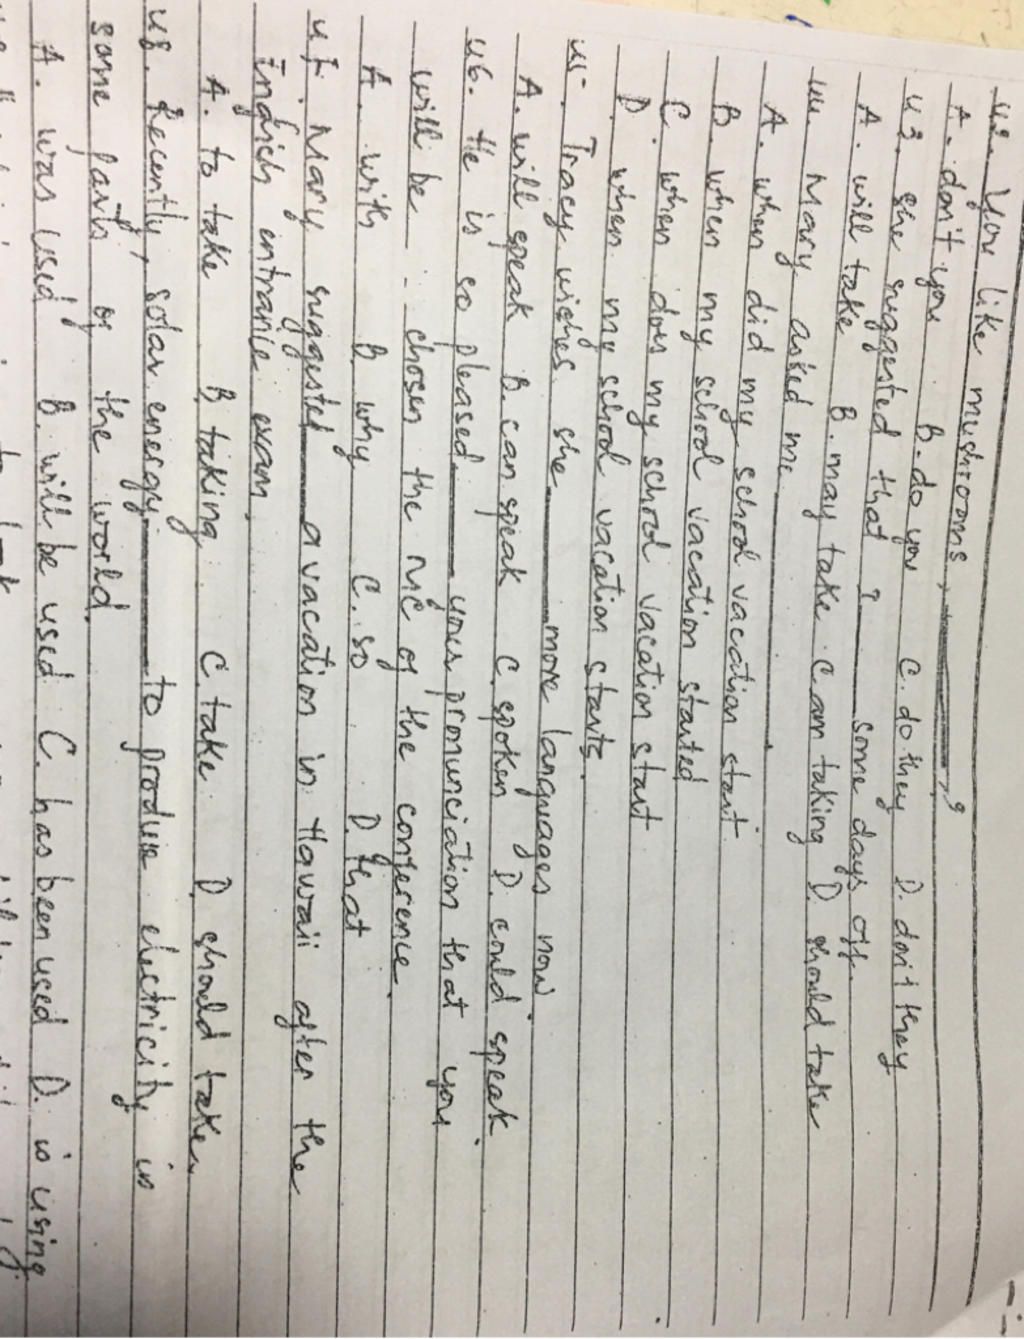 42. You like mushrooms, ______, ?
A. don't you B. do you C. do they D. don't they
43. She suggested that I ______ some days off.
A. will take B. may take C am taking D. should take
44. Mary asked me ______.
A. when did my school vacation start.
B. when my school vacation started
C. when does my school vacation start
D. when my school vacation starts.
45. Tracy wishes she ______ more languages now.
A. will speak B. can speak C. spoken D. could speak.
46. He is so pleased ______ your pronunciation that you
will be ... chosen the MC of the conference.
A. with B why C. so D. that
47. Mary suggested ______ a vacation in Hawaii after the
English entrance exam.
A. to take B taking C. take D. should take.
48. Recently, solar energy ______ to produce electricity in
some parts of the world.
A. was used B. will be used C. has been used D. is using